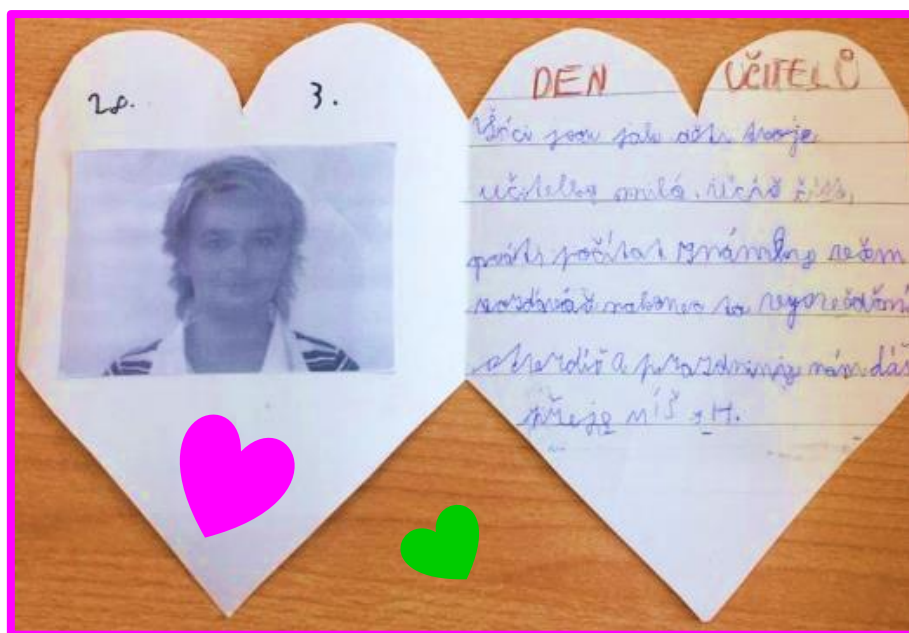 28. 3.
DEN UČITELŮ
Žáci jsou jak děti tvoje
učitelko milá. Učíš číst,
psát, počítat známky
rozdáváš nakonec to vysvědčění
a prazdniny nám dáš
přeje míš , H.